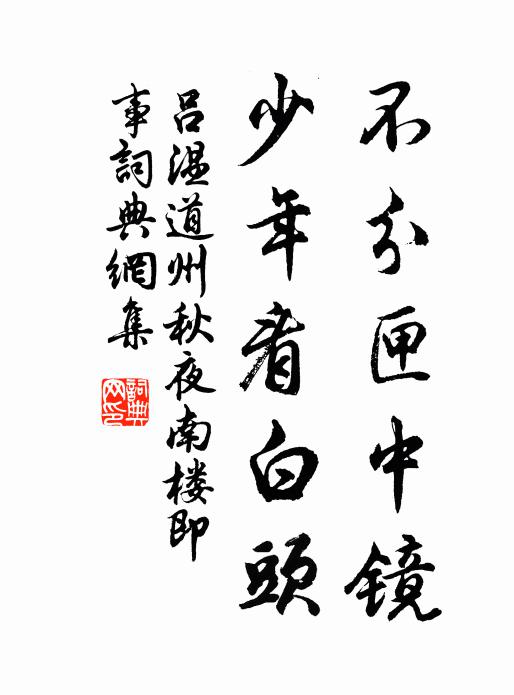 不分匣中镜
少年看白頭
吕温道州秋夜南楼即
事詞典網集
詞典
网印